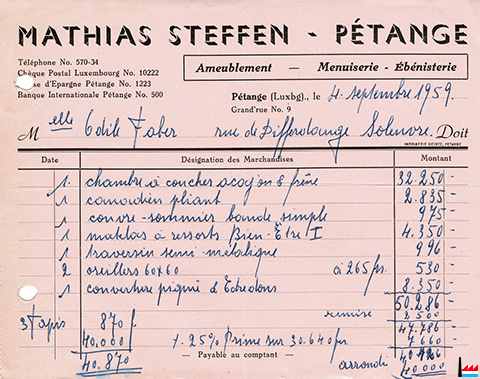 MATHIAS STEFFEN - PÉTANGE
Téléphone No. 570-34
Chèque Postal Luxembourg No. 10222
d'Epargne Pétange No. 1223
Banque Internationale Pétange No. 500
Ameublement — Menuiserie - Ébénisterie
Pétange (Luxbg.), le 4. septembre 1959.
Grand'rue No. 9
Melle Odile Faber rue de Differdange Solenvre. Doit
IMPRIMERIE HEINTZ, PETANGE
Date Désignation des Marchandises Montant
1. chambre à coucher acajou & frêne 32.250 -
1 canadien pliant 2.835 -
1 couvre-sommier bande simple 975 -
1 matelas à ressorts Bien-Être I 4.350 -
1 traversin semi-métalique 996 -
2 oreillers 60x60 à 265 frs. 530 -
1 couverture piqué d'Edredons 8.350 -
50.286 -
remise 2500
3 Tapis 870 f 47.786 -
40.000 f 1. 25% Prime sur 30.640 frs 7660 -
40.870 — Payable au comptant —
arrondi 40.000